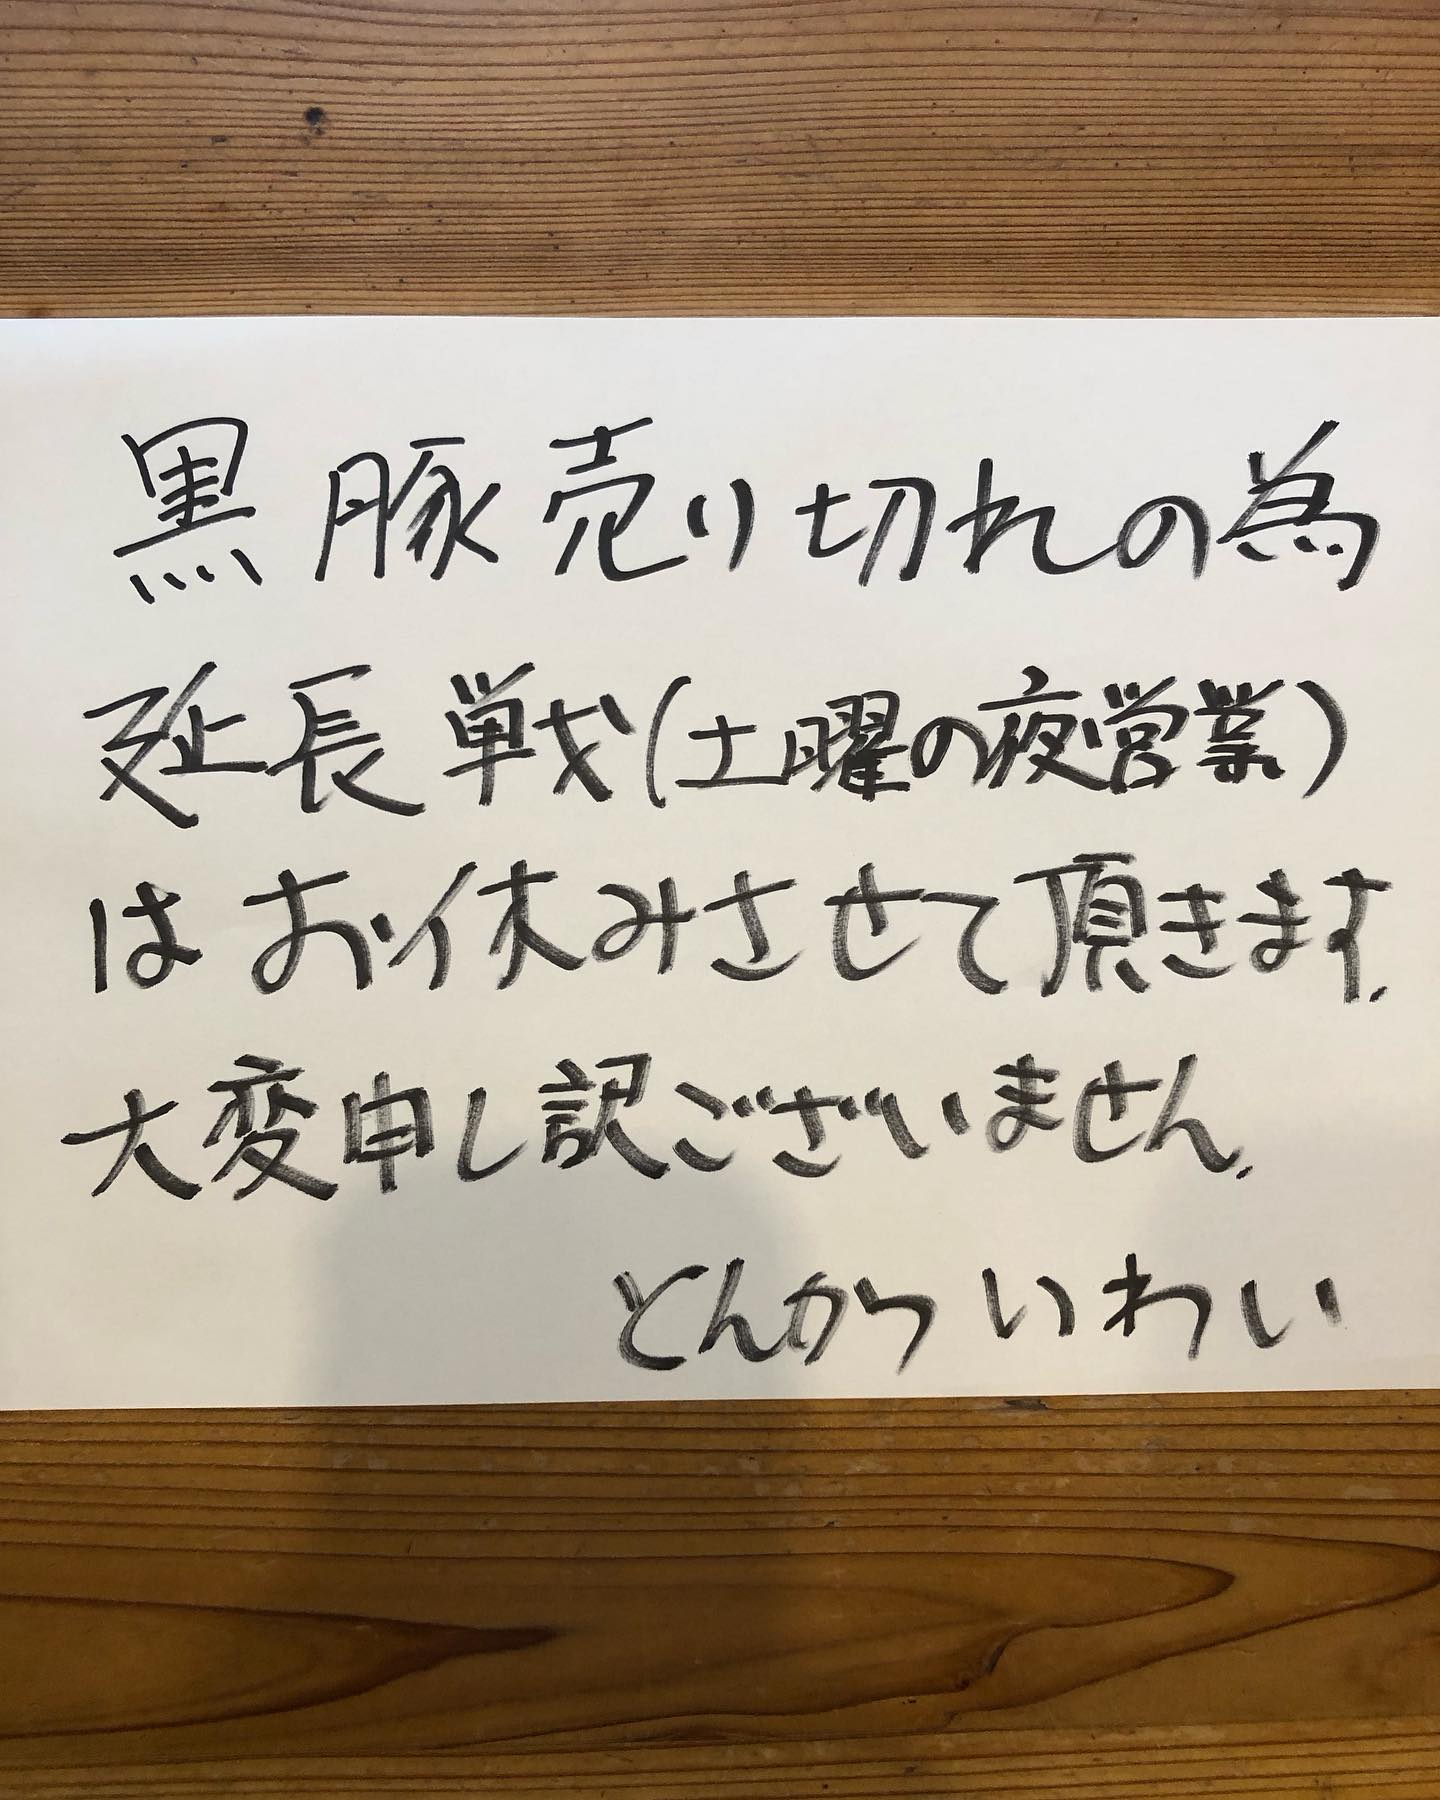 黒豚売り切れの為
延長戦(土曜の夜営業)
はお休みさせて頂きます.
大変申し訳ございません.
とんかつ いわい